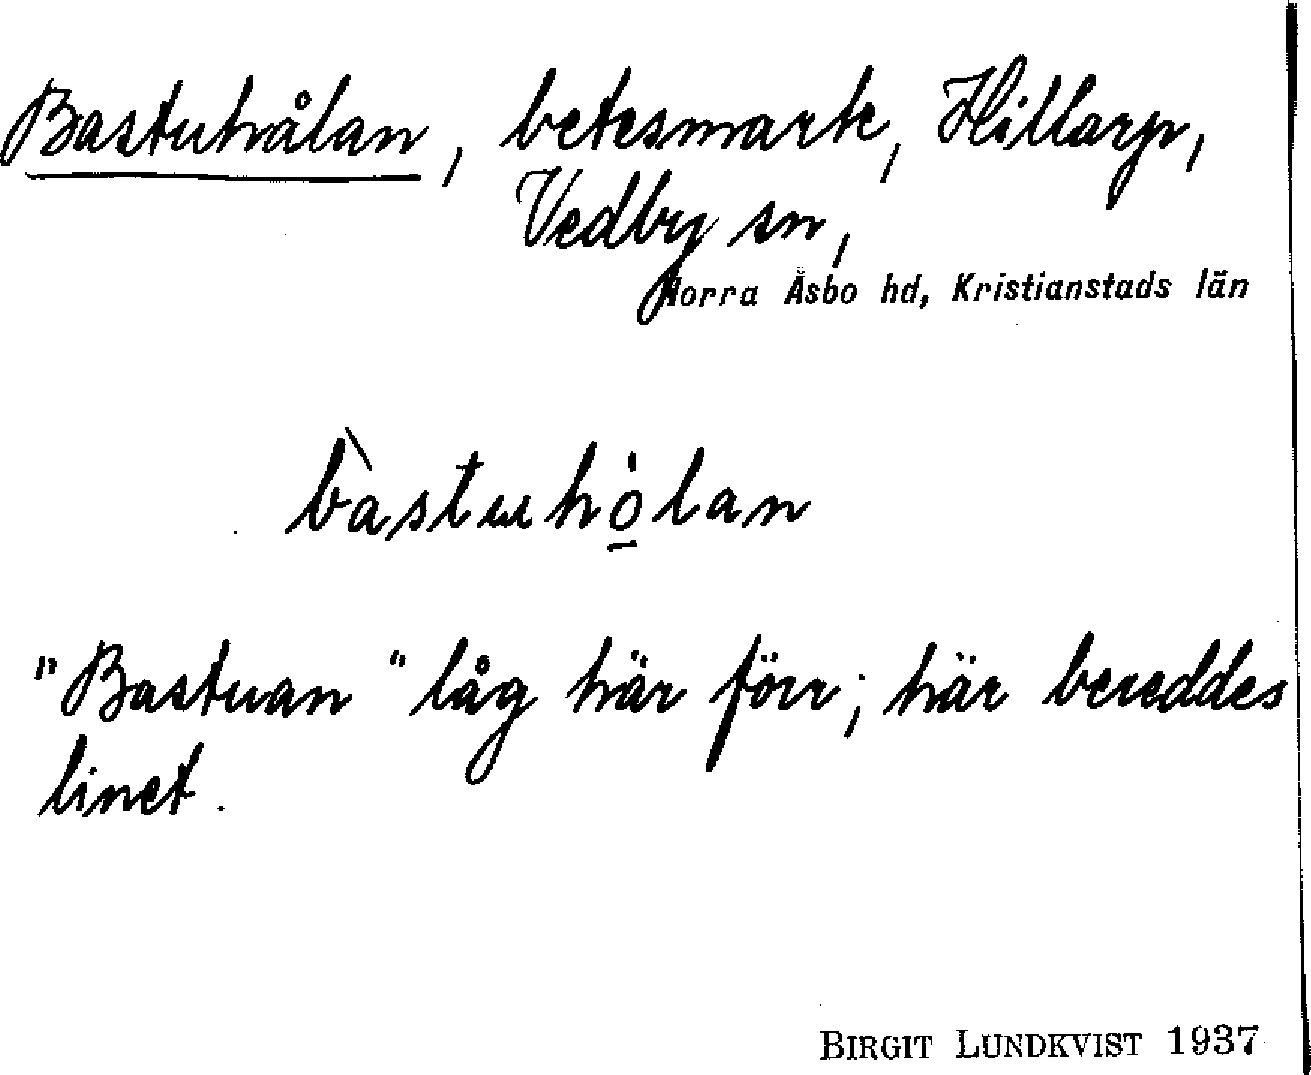 Bastuhålan, betesmark, Hillarp,
Vedby sn,
Norra Åsbo hd, Kristianstads län
bàstuhò̱lan
"Bastuan" låg här förr; här bereddes
linet.
BIRGIT LUNDKVIST 1937